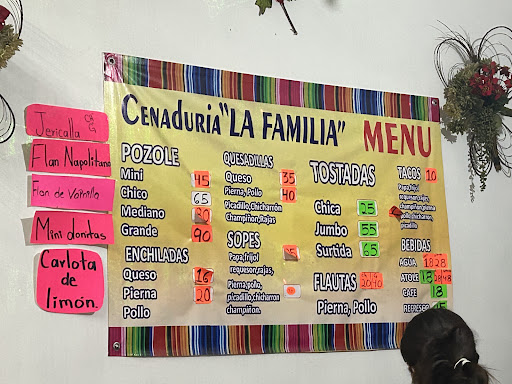 Jericalla CH G
Flan Napolitano
Flan de Vainilla
Mini donitas
Carlota
de
limón.
CENADURIA "LA FAMILIA" MENU
POZOLE
Mini 45
Chico 65
Mediano 80
Grande 90
ENCHILADAS
Queso 16
Pierna 20
Pollo
QUESADILLAS
Queso 35
Pierna, Pollo 40
Picadillo, Chicharrón
Champiñon, Rajas
SOPES
Papa, frijol
requeson, rajas,
Pierna, pollo,
picadillo, chicharron
champiñon.
TOSTADAS
Chica 25
Jumbo 55
Surtida 65
FLAUTAS
20 40
Pierna, Pollo
TACOS 10
Papa, frijol
champiñon, pierna
pollo, chicharron
picadillo
BEBIDAS
AGUA 18 28
ATOLE 18 28 48
CAFE 18